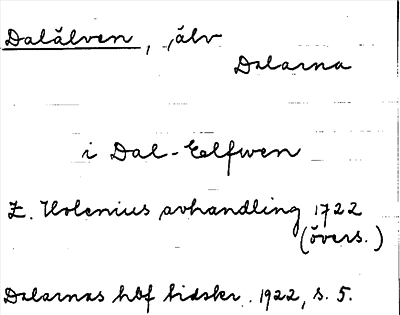 Dalälven, älv
Dalarna
i Dal-Eelfwen
Z. Holenius avhandling 1722
(övers.)
Dalarnas hbf tidskr. 1922, s. 5.